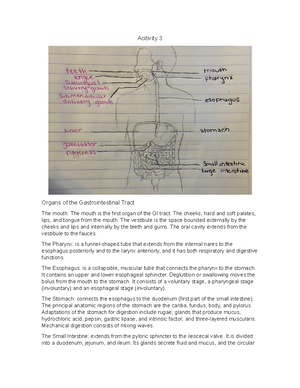 Activity 3
teeth
tongue
Sublingual
Salivary glands
Submandibular
Salivary glands
liver
gallbladder
pancreas
mouth
pharynx
esophagus
stomach
Small intestine
large intestine
Organs of the Gastrointestinal Tract
The mouth: The mouth is the first organ of the GI tract. The cheeks, hard and soft palates,
lips, and tongue form the mouth. The vestibule is the space bounded externally by the
cheeks and lips and internally by the teeth and gums. The oral cavity extends from the
vestibule to the fauces.
The Pharynx: is a funnel-shaped tube that extends from the internal nares to the
esophagus posteriorly and to the larynx anteriorly, and it has both respiratory and digestive
functions.
The Esophagus: is a collapsible, muscular tube that connects the pharynx to the stomach.
It contains an upper and lower esophageal sphincter. Deglutition or swallowing moves the
bolus from the mouth to the stomach. It consists of a voluntary stage, a pharyngeal stage
(involuntary) and an esophageal stage (involuntary).
The Stomach: connects the esophagus to the duodenum (first part of the small intestine).
The principal anatomic regions of the stomach are the cardia, fundus, body, and pylorus.
Adaptations of the stomach for digestion include rugae; glands that produce mucus,
hydrochloric acid, pepsin, gastric lipase, and intrinsic factor; and three-layered muscularis.
Mechanical digestion consists of mixing waves.
The Small Intestine: extends from the pyloric sphincter to the ileocecal valve. It is divided
into a duodenum, jejunum, and ileum. Its glands secrete fluid and mucus, and the circular